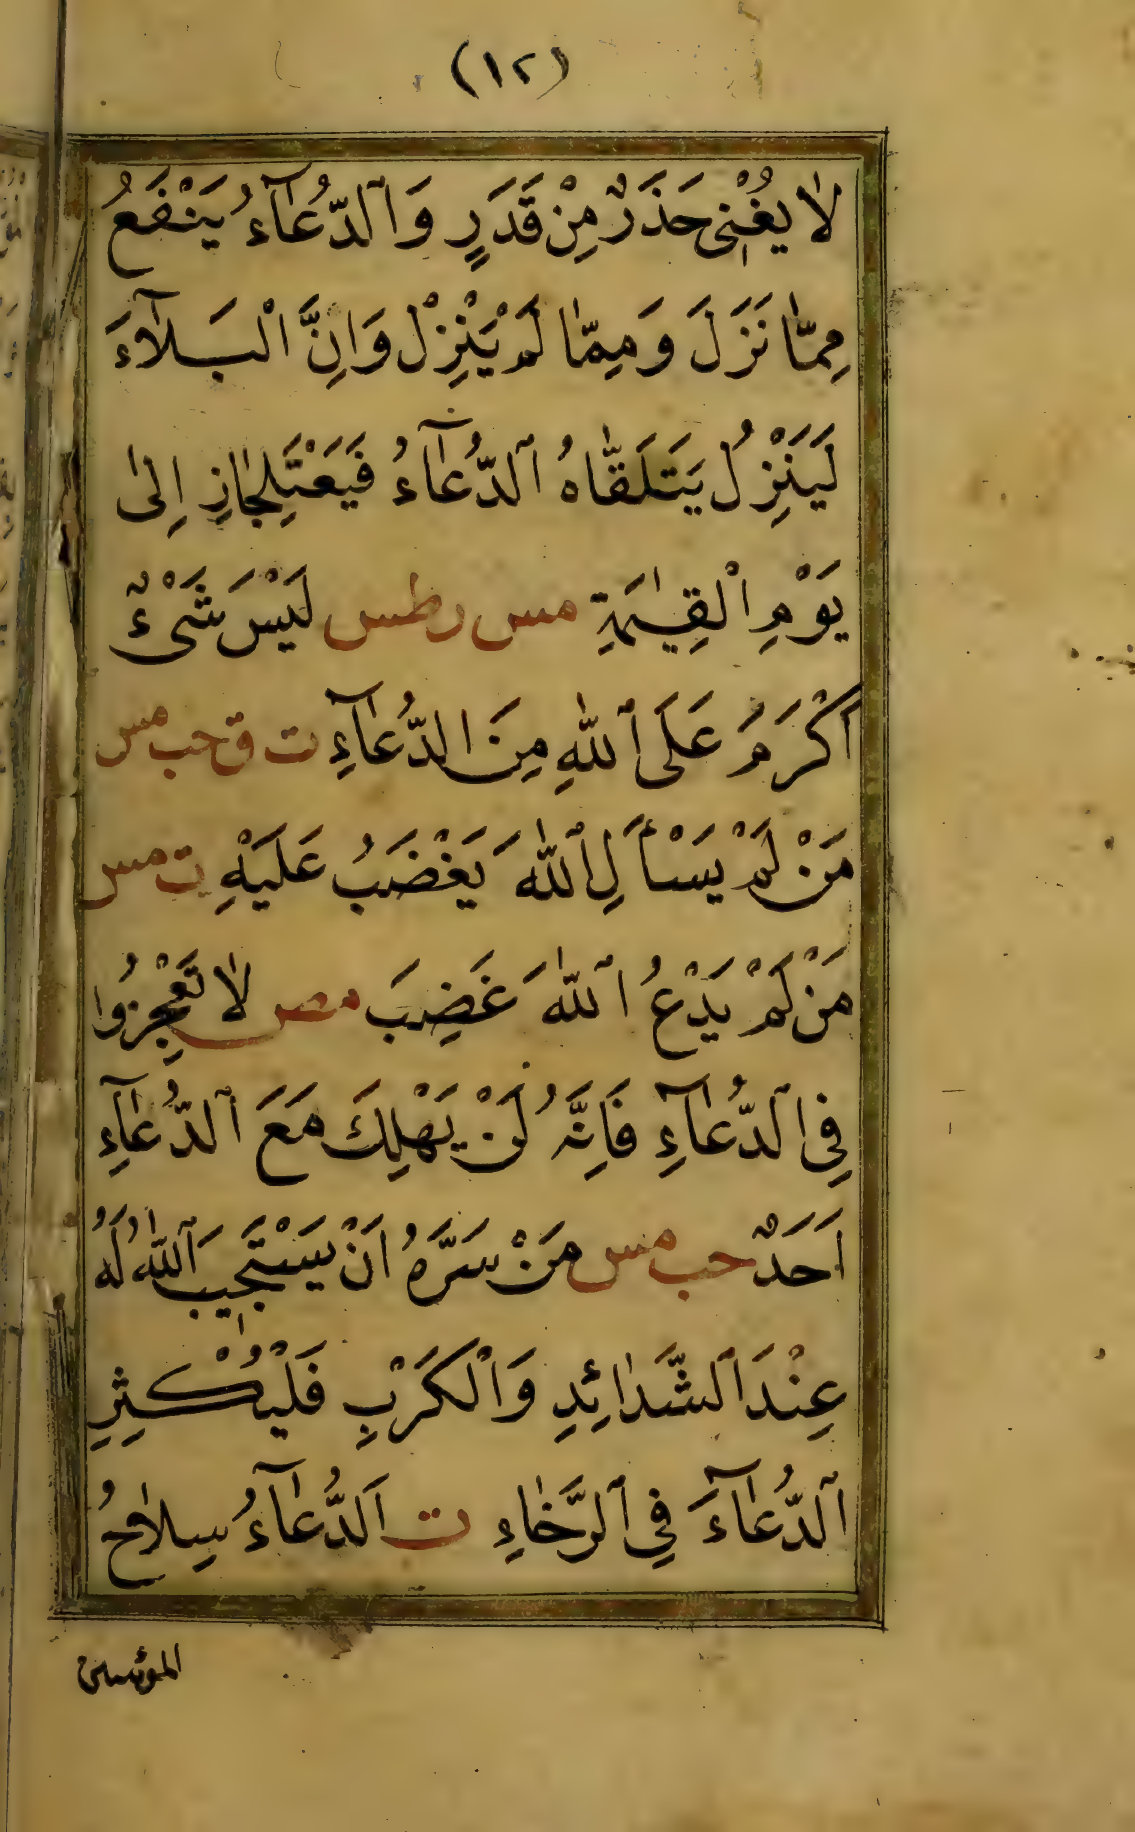 (١٢)
لَا يُغْنِي حَذَرٌ مِنْ قَدَرٍ وَالدُّعَآءُ يَنْفَعُ
مِمَّا نَزَلَ وَمِمَّا لَمْ يَنْزِلْ وَاِنَّ الْبَلَآءَ
لَيَنْزِلُ يَتَلَقَّاهُ الدُّعَآءُ فَيَعْتَلِجَانِ اِلٰى
يَوْمِ الْقِيٰمَةِ مس ر طس لَيْسَ شَیْءٌ
اَكْرَمُ عَلَى اللّٰهِ مِنَ الدُّعَآءِ ت ق حب مس
مَنْ لَمْ يَسْأَلِ اللّٰهَ يَغْضَبُ عَلَيْهِ ت مس
مَنْ لَمْ يَدْعُ اللّٰهَ غَضِبَ مص لَا تَعْجِزُوا
فِي الدُّعَآءِ فَاِنَّهُ لَنْ يَهْلِكَ مَعَ الدُّعَآءِ
اَحَدٌ حب مس مَنْ سَرَّهُ اَنْ يَسْتَجِيبَ اللّٰهُ لَهُ
عِنْدَ الشَّدَائِدِ وَالْكَرْبِ فَلْيُكْثِرِ
الدُّعَآءَ فِي الرَّخَاءِ ت اَلدُّعَآءُ سِلَاحُ
المؤمن